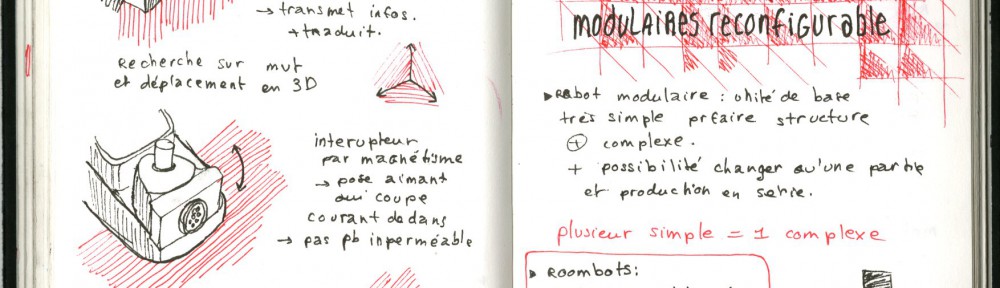 → transmet infos.
+ traduit.
Recherche sur mvt
et déplacement en 3D
interupteur
par magnétisme
→ pose aimant
qui coupe
courant dedans
→ pas pb inperméable
MODULAIRES reconfigurable
▸ Robot modulaire : unité de base
très simple pr faire structure
⊕ complexe.
+ possibilité changer qu'une partie
et production en serie.
plusieur simple = 1 complexe
▸ ROOMBOTS: